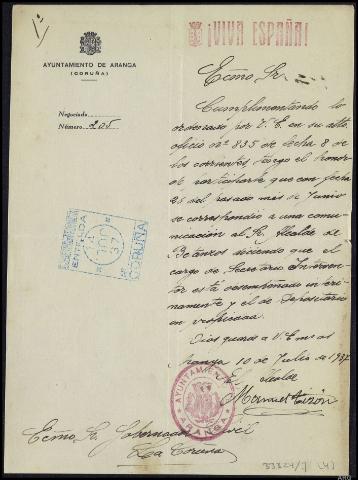 ¡VIVA ESPAÑA!
AYUNTAMIENTO DE ARANGA
(CORUÑA)
Negociado
Número 205
Excmo Sr.
Cumplimentando lo
ordenado por V.E. en su atto
oficio nº 835 de fecha 8 de
los corrientes, tengo el honor
de participarle que con fecha
25 del pasado mes de Junio
de correspondio a una comu-
nicación al Sr Alcalde de
Betanzos diciendo que el
cargo de Secretario Interven-
tor está desempeñado interi-
namente y el de Depositario
en
Dios guarde a V.E. ms as
Aranga 10 de Julio de 1937
El Alcalde
Manuel
ENTRADA
JUL 37
CORUÑA
AYUNTAMIENTO
ARANGA
Excmo Sr Gobernador Civil
La Coruña